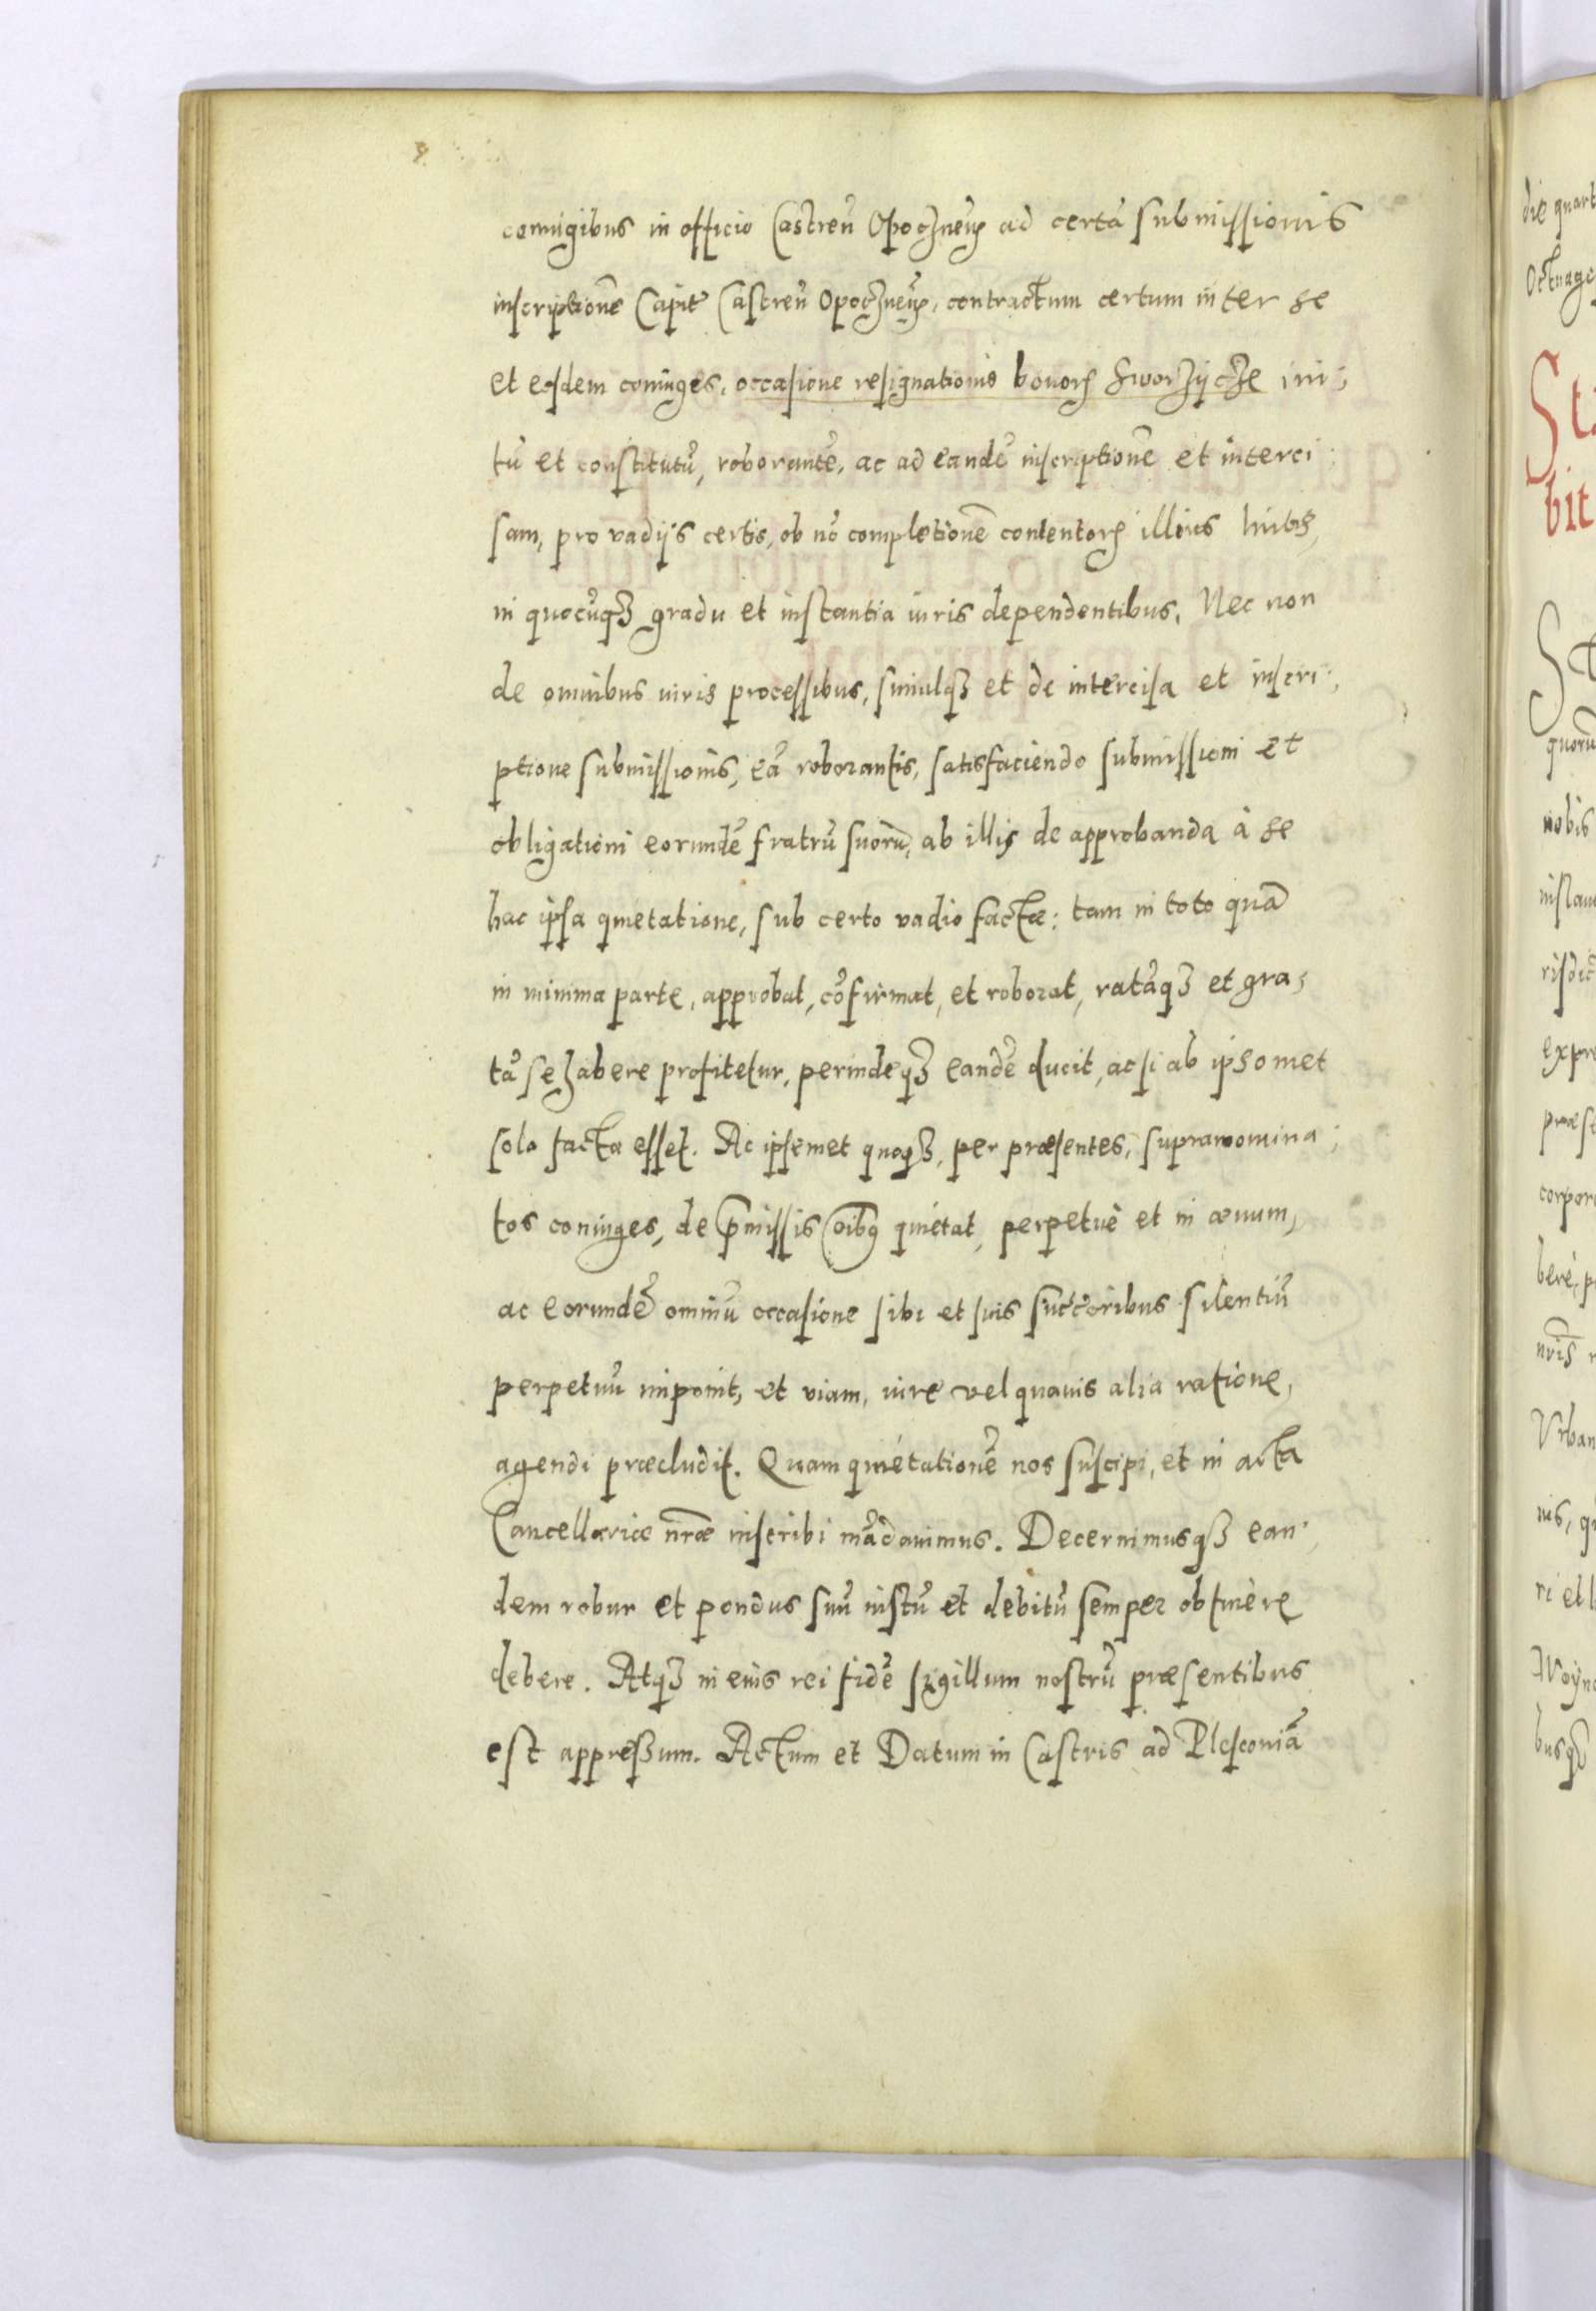 coniugibus in officio Castreñ Opoczneñ ad certã submissionis
inscriptionẽ Capit Castreñ Opoczneñ, contractum certum inter se
et eosdem coniuges, occasione resignationis bonorꝝ Hworzÿcze ini:
tũ et constitutũ, roborantẽ, ac ad eandẽ inscriptionẽ et interci:
sam, pro vadijs certis, ob nõ completionẽ contentorꝝ illius
in quocũqꝫ gradu et instantia iuris dependentibus. Nec non
de omnibus iuris processibus, simulqꝫ et de intercisa et inscri:
ptione submissionis, eã roborantis, satisfaciendo submissioni et
obligationi eorundẽ fratrũ suorũ, ab illis de approbanda à se
hac ipsa quietatione, sub certo vadio factæ: tam in toto quã
in minima parte, approbat, cõfirmat, et roborat, ratãqꝫ et gra:
tã se habere profitetur, perindeqꝫ eandẽ ducit, ac si ab ipsomet
solo facta esset. Ac ipsemet quoqꝫ, per præsentes, supranomina:
tos coniuges, de p̃missis oĩbꝰ quietat, perpetuè et in æuum,
ac eorundẽ omniũ occasione sibi et suis succ̃oribus silentiũ
perpetuũ imponit, et viam, iure vel quauis alia ratione,
agendi præcludit. Quam quietationẽ nos suscipi, et in acta
Cancellariæ nr̃æ inscribi mãdauimus. Decernimusqꝫ ean:
dem robur et pondus suũ iustũ et debitũ semper obtinere
debere. Atqꝫ in eius rei fidẽ sigillum nostrũ præsentibus
est appressum. Actum et Datum in Castris ad Plesconiã